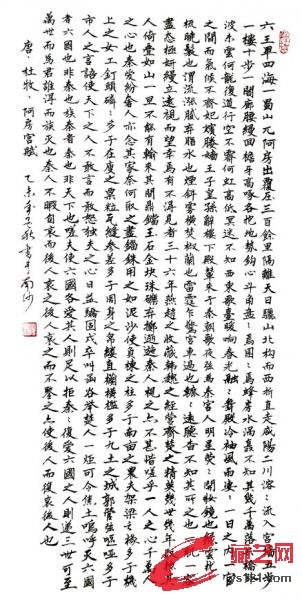 六王畢四海一蜀山兀阿房出覆壓三百餘里隔離天日驪山北構而西折直走咸陽二川溶々流入宮牆五步
一樓十步一閣廊腰縵回檐牙高啄各抱地勢鈎心斗角盤々焉囷々焉蜂房水渦矗不知其幾千萬落長橋臥
波未雲何龍復道行空不霽何虹高低冥迷不知西東歌臺暖響春光融々舞殿冷袖風雨凄々一日之内一宮
之間而氣候不齊妃嬪媵嬙王子皇孫辭樓下殿輦来于秦朝歌夜弦爲秦宮人明星熒々開妝鏡也綠雲擾
々梳曉鬟也渭流漲膩棄脂水也煙斜霧横焚椒蘭也雷霆乍驚宮車過也轆々遠聽杳不知其所之也一肌一容
盡態極妍縵立遠視而望幸焉有不得見者三十六年燕趙之收藏韓魏之經營齊楚之精英幾世幾年取掠其
人倚疊如山一旦不能有輸来其間鼎鐺玉石金塊珠礫棄擲邐迤秦人視之亦不甚惜嗟乎一人之心千萬人
之心也秦愛紛奢人亦念其家奈何取之盡錙銖用之如泥沙使負棟之柱多于南畝之農夫架梁之椽多于機
上之女工釘頭磷々多于在庾之粟粒瓦縫參差多于周身之帛縷直欄横檻多于九土之城郭管弦嘔啞多于
市人之言語使天下之人不敢言而敢怒獨夫之心日益驕固戍卒叫函谷舉楚人一炬可憐焦土嗚呼滅六國
者六國也非秦也族秦者秦也非天下也嗟夫使六國各愛其人則足以拒秦秦復愛六國之人則遞三世可至
萬世而爲君誰得而族滅也秦人不暇自哀而後人哀之後人哀之而不鑒之亦使後人而復哀後人也
唐杜牧阿房宮賦 乙未年之秋書于南沙